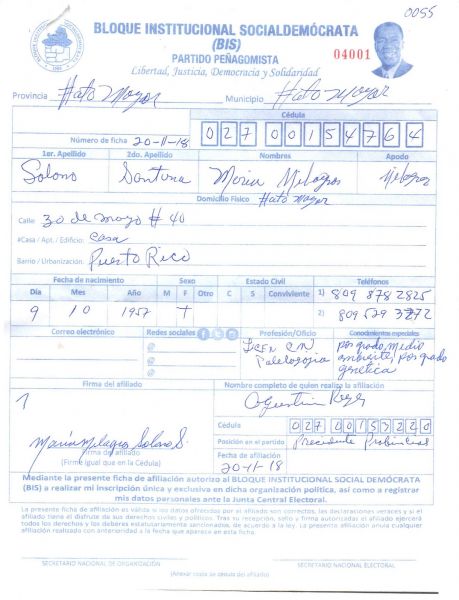 0055
BLOQUE INSTITUCIONAL SOCIALDEMÓCRATA
(BIS)
PARTIDO PEÑAGOMISTA
Libertad, Justicia, Democracia y Solidaridad
04001
Provincia Hato Mayor Municipio Hato Mayor
Cédula
Número de ficha 20-11-18 027 0015476 4
1er. Apellido 2do. Apellido Nombres Apodo
Solano Santana Maria Milagros Milagros
Domicilio Físico Hato Mayor
Calle: 30 de mayo # 40
#Casa / Apt. / Edificio: casa
Barrio / Urbanización: Puerto Rico
Fecha de nacimiento Sexo Estado Civil Teléfonos
Día Mes Año M F Otro C S Conviviente 1) 809 878 2825
9 10 1957 F 2) 809 529 3272
Correo electrónico Redes sociales Profesión/Oficio Conocimientos especiales
Licen CN post grado, medio
ambiente, post grado
genetica
Firma del afiliado Nombre completo de quien realiza la afiliación
Agustin Reyes
Cédula 027 0015322 0
María Milagros Solano S. Posición en el partido Precidente Probincial
Firma del afiliado
(Firme igual que en la Cédula) Fecha de afiliación
20-11-18
Mediante la presente ficha de afiliación autorizo al BLOQUE INSTITUCIONAL SOCIAL DEMÓCRATA
(BIS) a realizar mi inscripción única y exclusiva en dicha organización política, así como a registrar
mis datos personales ante la Junta Central Electoral.
La presente ficha de afiliación es válida si los datos ofrecidos por el afiliado son correctos, las declaraciones veraces y si el
afiliado tiene el disfrute de sus derechos civiles y políticos. Tras su recepción, sello y firma autorizada el afiliado ejercerá
todos los derechos y los deberes estatutariamente sancionados, de acuerdo a la ley. La presente afiliación anula cualquier
afiliación realizada con anterioridad a la fecha que aparece en esta ficha.
SECRETARIO NACIONAL DE ORGANIZACIÓN SECRETARIO NACIONAL ELECTORAL
(Anexar copia de cédula del afiliado)